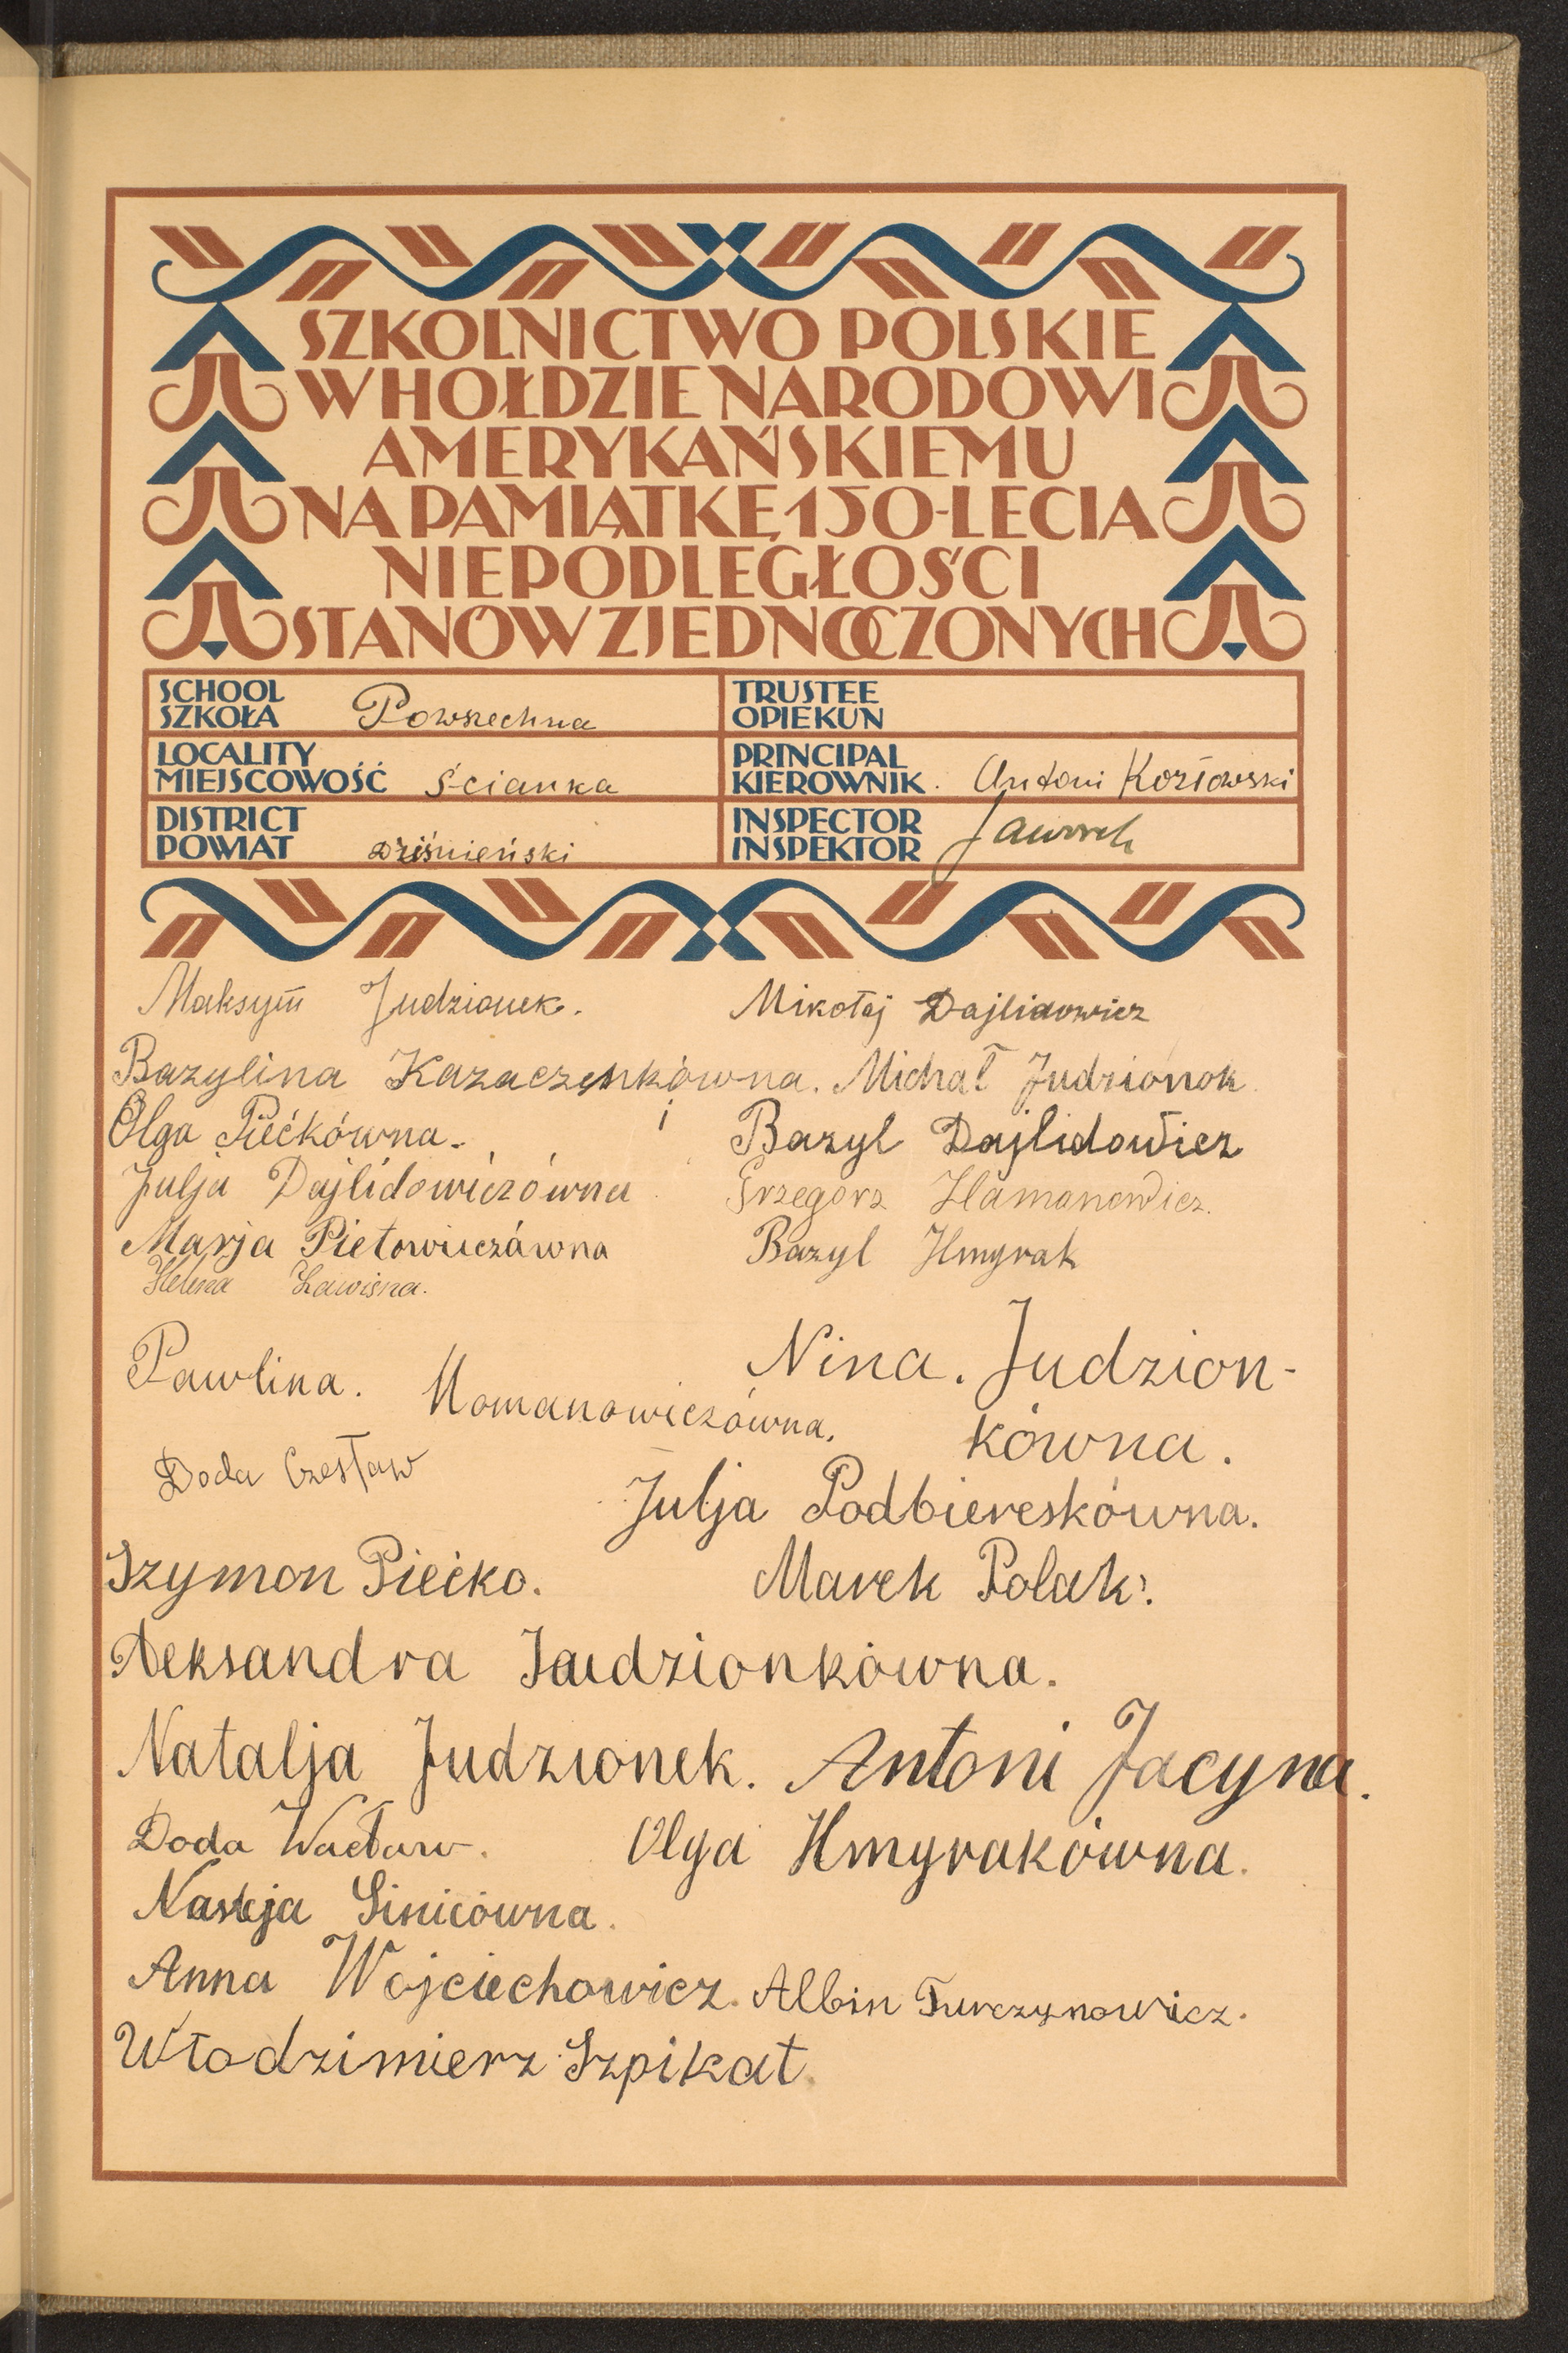 SZKOLNICTWO POLSKIE
W HOŁDZIE NARODOWI
AMERYKAŃSKIEMU
NA PAMIĄTKĘ 150-LECIA
NIEPODLEGŁOŚCI
STANÓW ZJEDNOCZONYCH
SCHOOL
SZKOŁA Powszechna
TRUSTEE
OPIEKUN
LOCALITY
MIEJSCOWOŚĆ Ścianka
PRINCIPAL
KIEROWNIK. Antoni Kozłowski
DISTRICT
POWIAT Dziśnieński
INSPECTOR
INSPEKTOR
Maksym Judzionek. Mikołaj Dajlidowicz
Bazylina Kazaczenkówna. Michał Judzionok
Olga Piećkówna. Bazyl Dajlidowicz
Julja Dajlidowiczówna Grzegorz Hamanowicz.
Marja Pietowiczówna Bazyl Hmyrak
Helena Zawisna.
Pawlina. Homanowiczówna. Nina. Judzion-
kówna.
Doda Czesław Julja Podbiereskówna.
Szymon Piećko. Marek Polak.
Aleksandra Judzionkówna.
Natalja Judzionek. Antoni Jacyna.
Doda Wacław. Olga Hmyrakówna.
Nastja Sinicówna.
Anna Wojciechowicz. Albin Turczynowicz.
Włodzimierz Szpikat.